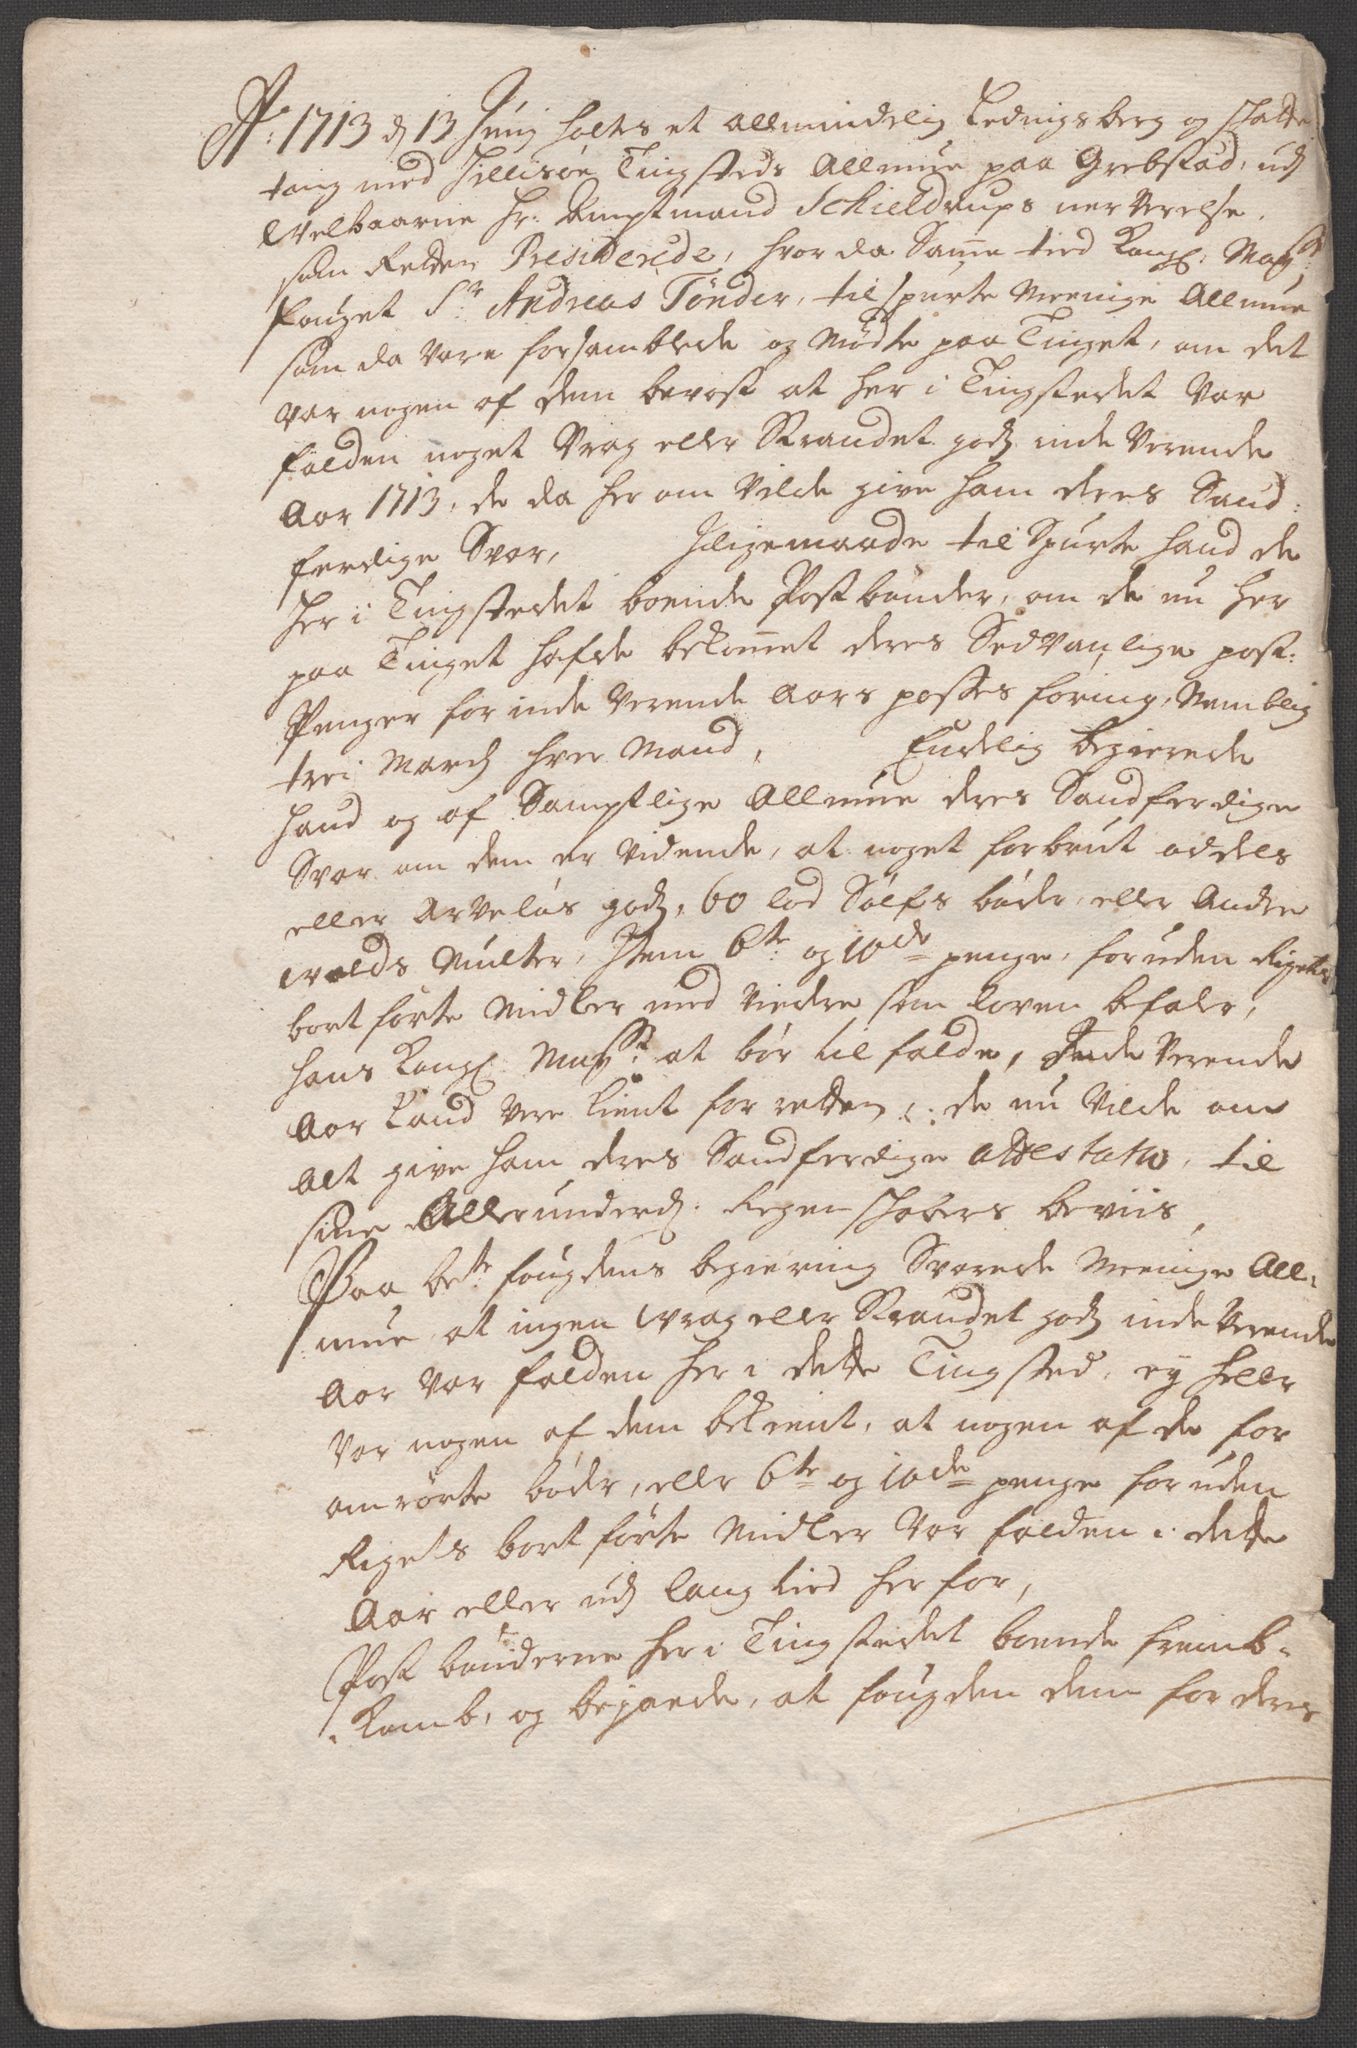 Ao: 1713 d 13 Junij holtes et allmindelig Ledingsberg og schatte
ting med Jellisøe Tingsteds Allmue paa Grebstad, udj
Welbaarne Hr: Amptmand Schieldrups nerverelse.
som Retten Presiderede, hvor da Samme tied Kongl: Mayst:
fouget Sr Andreas Tønder, tilspurte Meenige Allmue
som da vare forsamblede og Mødte paa Tinget, om det
var nogen af dem bevost at her i Tingstedet var
falden noget Vrag eller Strandet godz indeverende
Aar 1713, de da her om vilde give ham deres Sand-
ferdige Svar, Jligemaade tilspurte hand de
her i Tingstedet boende Postbønder, om de nu her
paa Tinget hafde bekommet deres Sedvanlige post-
Penger for inde verende Aars postes føring, Nemblig
trej Marck hver Mand, Endelig begierede
hand og af Samptlige Allmue deres Sandferdige
Svar om dem er vidende, at noget forbrut oddels
eller Arveløs godz, 60 lod Sølfs bøder, eller Andre
Wolds Mulcter, Item 6te: og 10de penge, foruden Rigets
bortførte Midler med videre som loven befaler,
Hans Kongl: Mayst: at bør tilfalde, Jnde verende
Aar kand vere kient for retten, :de nu vilde om
Alt give ham deres Sandferdige attestatio, til
sine Allerunderd: Regenschabers beviis,
Paa bete fougdens begiering Svarede Meenige All-
mue, at ingen Wrag eller Strandet godz inde verende
Aar var falden her i dette Tingsted, ey heller
var nogen af dem bekient, at nogen af de for
omrørte bøder, eller 6te og 10de penge foruden
Rigets bortførte Midler var falden i dette
Aar eller udj lang tied her for,
Postbønderne her i Tingstedet boende fremb-
komb, og bejaede, at fougden dem for deres